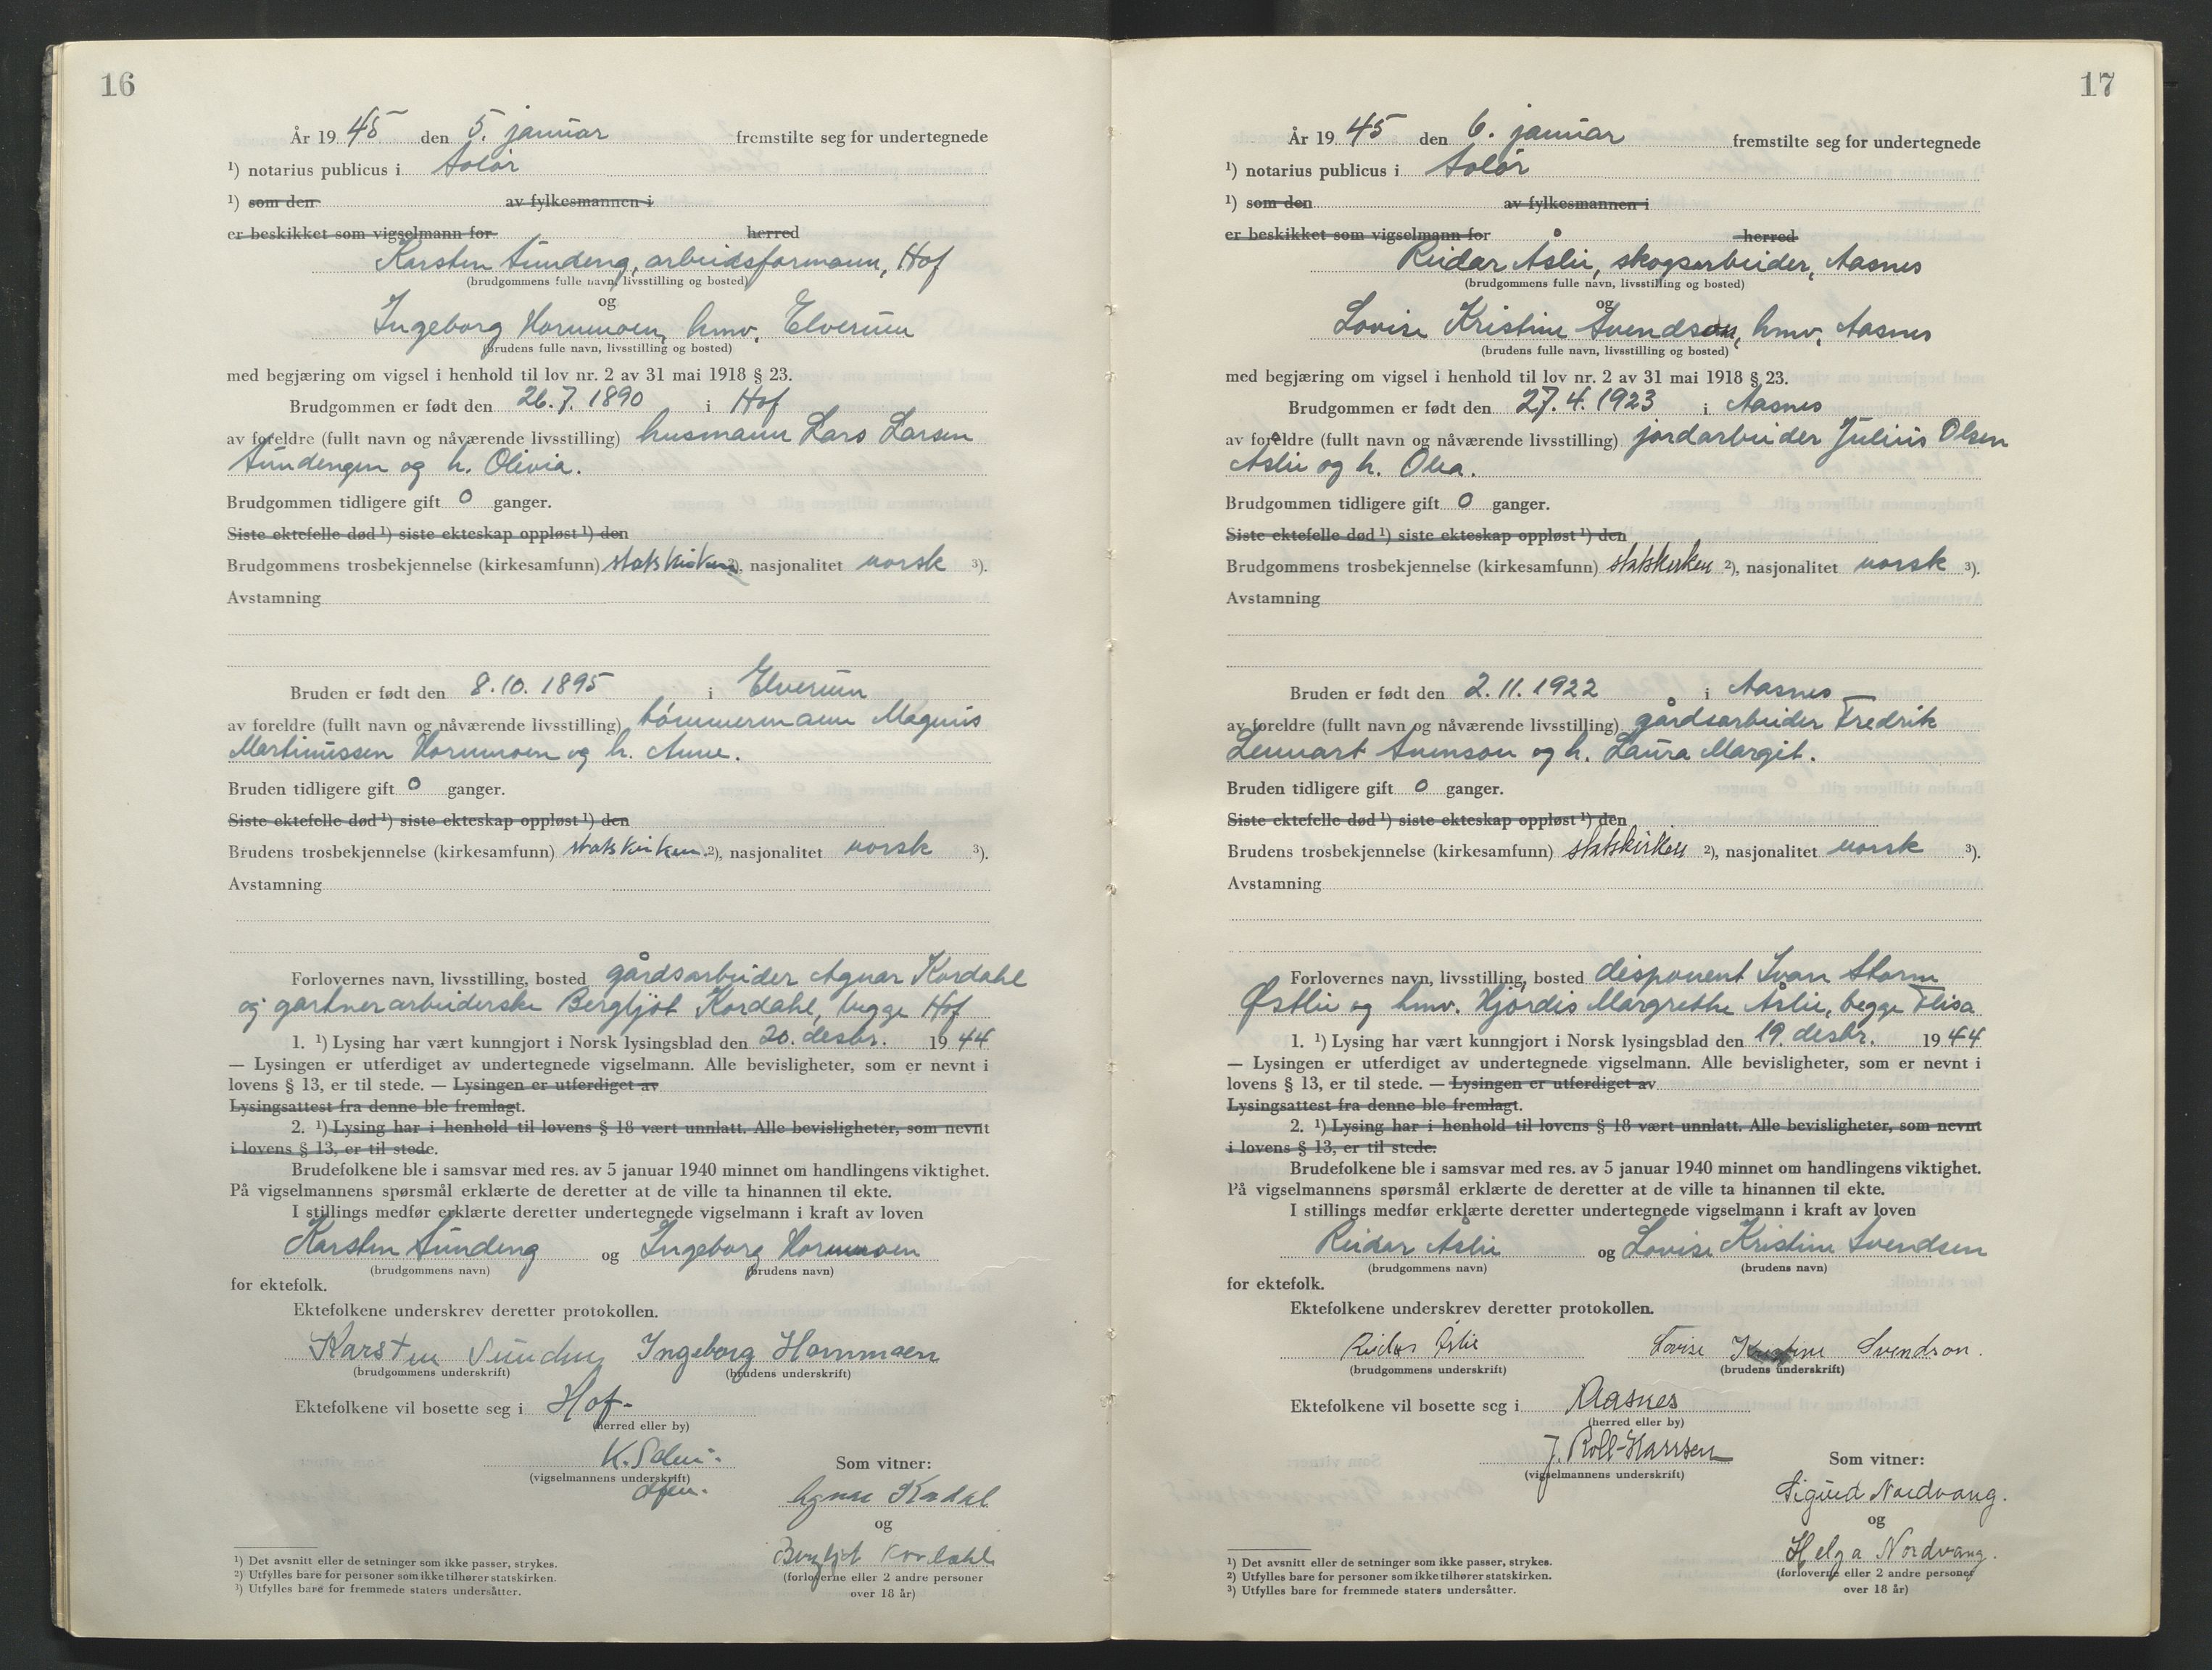 16
År 19 45 den 5. januar fremstilte seg for undertegnede
¹) notarius publicus i Solør
¹) som den av fylkesmannen i
er beskikket som vigselmann for herred
Karsten Sundeng, arbeidsformann, Hof
(brudgommens fulle navn, livsstilling og bosted)
og
Ingeborg Hornmoen, hmv, Elverum
(brudens fulle navn, livsstilling og bosted)
med begjæring om vigsel i henhold til lov nr. 2 av 31 mai 1918 § 23.
Brudgommen er født den 26.7.1890 i Hof
av foreldre (fullt navn og nåværende livsstilling) husmann Lars Larsen
Sundengen og h. Olivia.
Brudgommen tidligere gift 0 ganger.
Siste ektefelle død ¹) siste ekteskap oppløst ¹) den
Brudgommens trosbekjennelse (kirkesamfunn) statskirken ²), nasjonalitet norsk ³).
Avstamning
Bruden er født den 8.10.1895 i Elverum
av foreldre (fullt navn og nåværende livsstilling) tømmermann Magnus
Martinussen Hornmoen og h. Anne.
Bruden tidligere gift 0 ganger.
Siste ektefelle død ¹) siste ekteskap oppløst ¹) den
Brudens trosbekjennelse (kirkesamfunn) statskirken ²), nasjonalitet norsk ³).
Avstamning
Forlovernes navn, livsstilling, bosted gårdsarbeider Agnar Kordahl
og gartnerarbeiderske Bergljot Kordahl, begge Hof
1. ¹) Lysing har vært kunngjort i Norsk lysingsblad den 20. desbr. 19 44
— Lysingen er utferdiget av undertegnede vigselmann. Alle bevisligheter, som er nevnt i
lovens § 13, er til stede. — Lysingen er utferdiget av
Lysingsattest fra denne ble fremlagt.
2. ¹) Lysing har i henhold til lovens § 18 vært unnlatt. Alle bevisligheter, som nevnt
i lovens § 13, er til stede.
Brudefolkene ble i samsvar med res. av 5 januar 1940 minnet om handlingens viktighet.
På vigselmannens spørsmål erklærte de deretter at de ville ta hinannen til ekte.
I stillings medfør erklærte deretter undertegnede vigselmann i kraft av loven
Karsten Sundeng og Ingeborg Hornmoen
(brudgommens navn) (brudens navn)
for ektefolk.
Ektefolkene underskrev deretter protokollen.
Karsten Sundeng Ingeborg Hornmoen
(brudgommens underskrift) (brudens underskrift)
Ektefolkene vil bosette seg i Hof-
(herred eller by)
K.
(vigselmannens underskrift)
Som vitner:
Agnar Kordal
og
Bergljot Kordahl
(forloverne eller 2 andre personer
over 18 år)
¹) Det avsnitt eller de setninger som ikke passer, strykes.
²) Utfylles bare for personer som ikke tilhører statskirken.
³) Utfylles bare for fremmede staters undersåtter.
17
År 19 45 den 6. januar fremstilte seg for undertegnede
¹) notarius publicus i Solør
¹) som den av fylkesmannen i
er beskikket som vigselmann for herred
Reidar Åslie, skogsarbeider, Aasnes
(brudgommens fulle navn, livsstilling og bosted)
og
Lovise Kristine Svendson, hmv, Aasnes
(brudens fulle navn, livsstilling og bosted)
med begjæring om vigsel i henhold til lov nr. 2 av 31 mai 1918 § 23.
Brudgommen er født den 27.4.1923 i Aasnes
av foreldre (fullt navn og nåværende livsstilling) jordarbeider Julius Olsen
Åslie og h. Olea.
Brudgommen tidligere gift 0 ganger.
Siste ektefelle død ¹) siste ekteskap oppløst ¹) den
Brudgommens trosbekjennelse (kirkesamfunn) statskirken ²), nasjonalitet norsk ³).
Avstamning
Bruden er født den 2.11.1922 i Aasnes
av foreldre (fullt navn og nåværende livsstilling) gårdsarbeider Fredrik
Lennart Svenson og h. Laura Margit.
Bruden tidligere gift 0 ganger.
Siste ektefelle død ¹) siste ekteskap oppløst ¹) den
Brudens trosbekjennelse (kirkesamfunn) statskirken ²), nasjonalitet norsk ³).
Avstamning
Forlovernes navn, livsstilling, bosted disponent Ivan Storm
Østlie og hmv. Hjørdis Margrethe Åslie, begge Flisa
1. ¹) Lysing har vært kunngjort i Norsk lysingsblad den 19. desbr. 19 44
— Lysingen er utferdiget av undertegnede vigselmann. Alle bevisligheter, som er nevnt i
lovens § 13, er til stede. — Lysingen er utferdiget av
Lysingsattest fra denne ble fremlagt.
2. ¹) Lysing har i henhold til lovens § 18 vært unnlatt. Alle bevisligheter, som nevnt
i lovens § 13, er til stede.
Brudefolkene ble i samsvar med res. av 5 januar 1940 minnet om handlingens viktighet.
På vigselmannens spørsmål erklærte de deretter at de ville ta hinannen til ekte.
I stillings medfør erklærte deretter undertegnede vigselmann i kraft av loven
Reidar Åslie og Lovise Kristine Svendsen
(brudgommens navn) (brudens navn)
for ektefolk.
Ektefolkene underskrev deretter protokollen.
Reidar Åslie Lovise Kristine Svendson.
(brudgommens underskrift) (brudens underskrift)
Ektefolkene vil bosette seg i Aasnes
(herred eller by)
J. Roll-Hanssen
(vigselmannens underskrift)
Som vitner:
Sigurd Nordvang.
og
Helga Nordvang.
(forloverne eller 2 andre personer
over 18 år)
¹) Det avsnitt eller de setninger som ikke passer, strykes.
²) Utfylles bare for personer som ikke tilhører statskirken.
³) Utfylles bare for fremmede staters undersåtter.